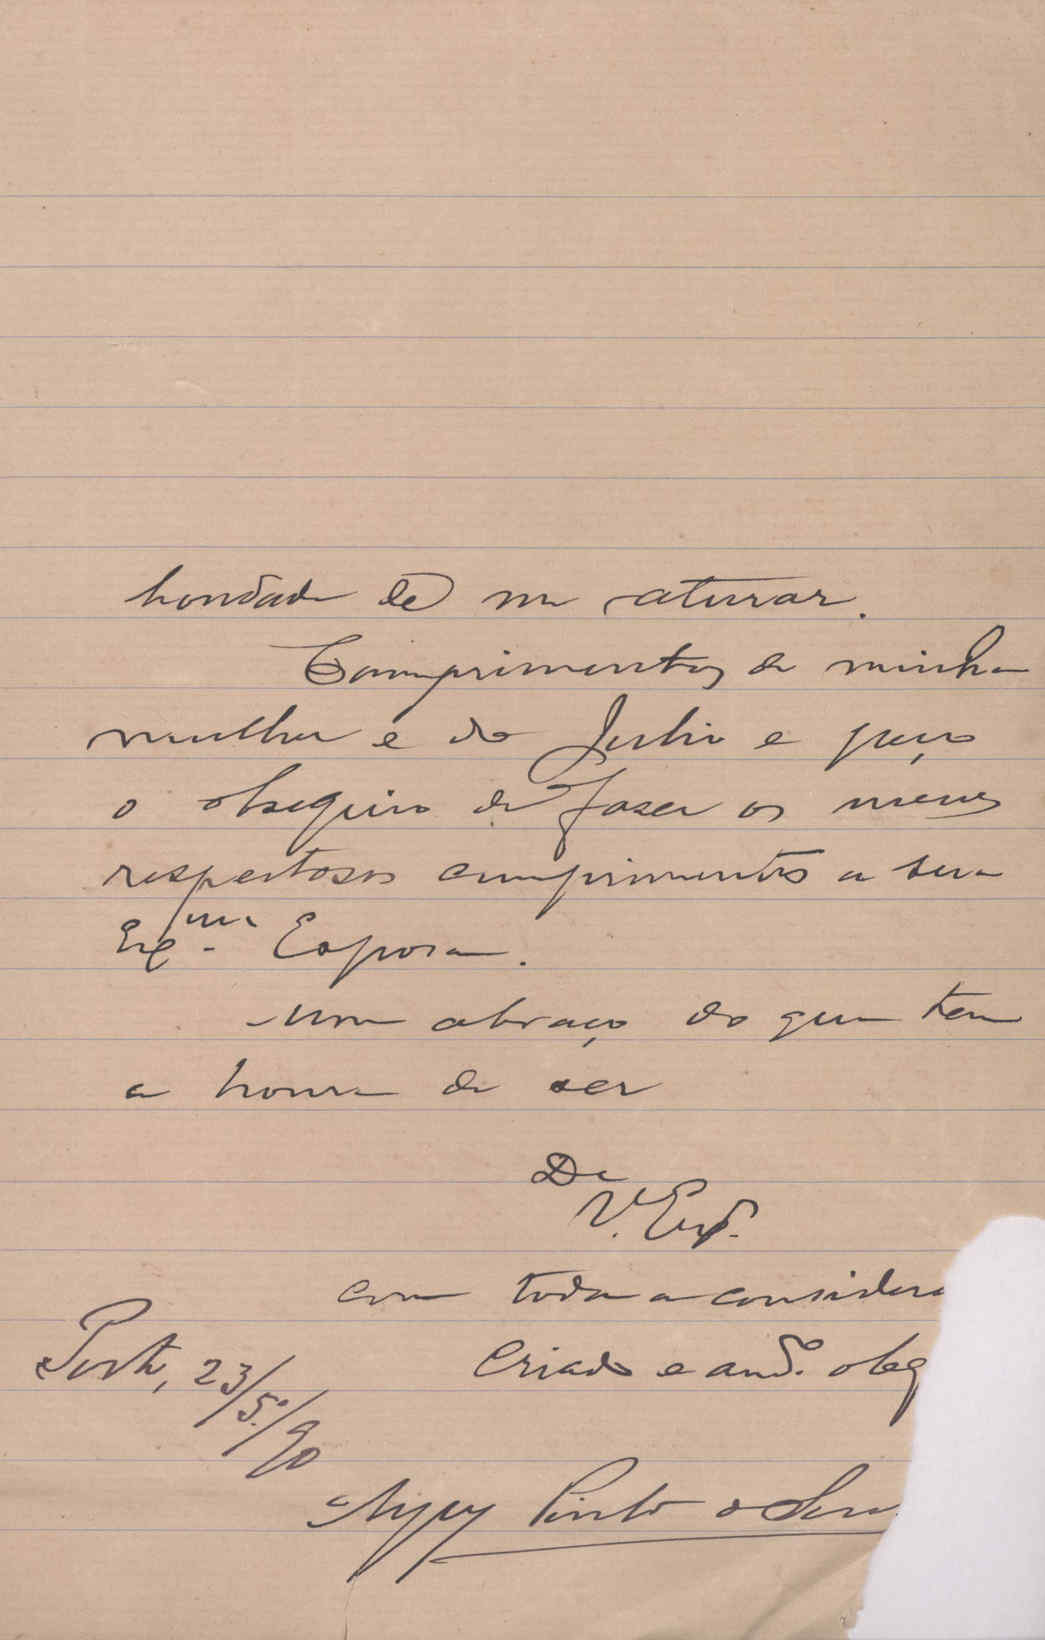 bondade de me aturar.
Comprimentos de minha
mulher e do Julio e peço
o obsequio de fazer os meus
respeitosos cumprimentos a sua
Exma. Esposa.
Um abraço do que tem
a honra de ser
De
V. Exª.
com toda a considera
Criado e amº. obg
Porto, 23/5º/90
Pinto